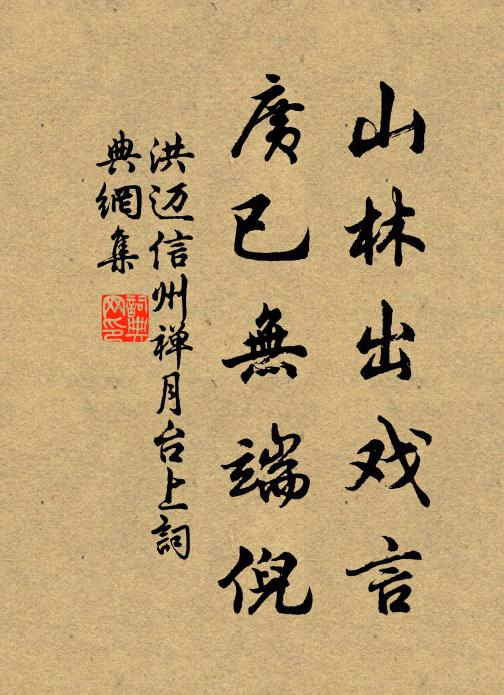 山林出戏言
廣已無端倪
洪迈信州禅月台上詞
典網集
詞典
网印